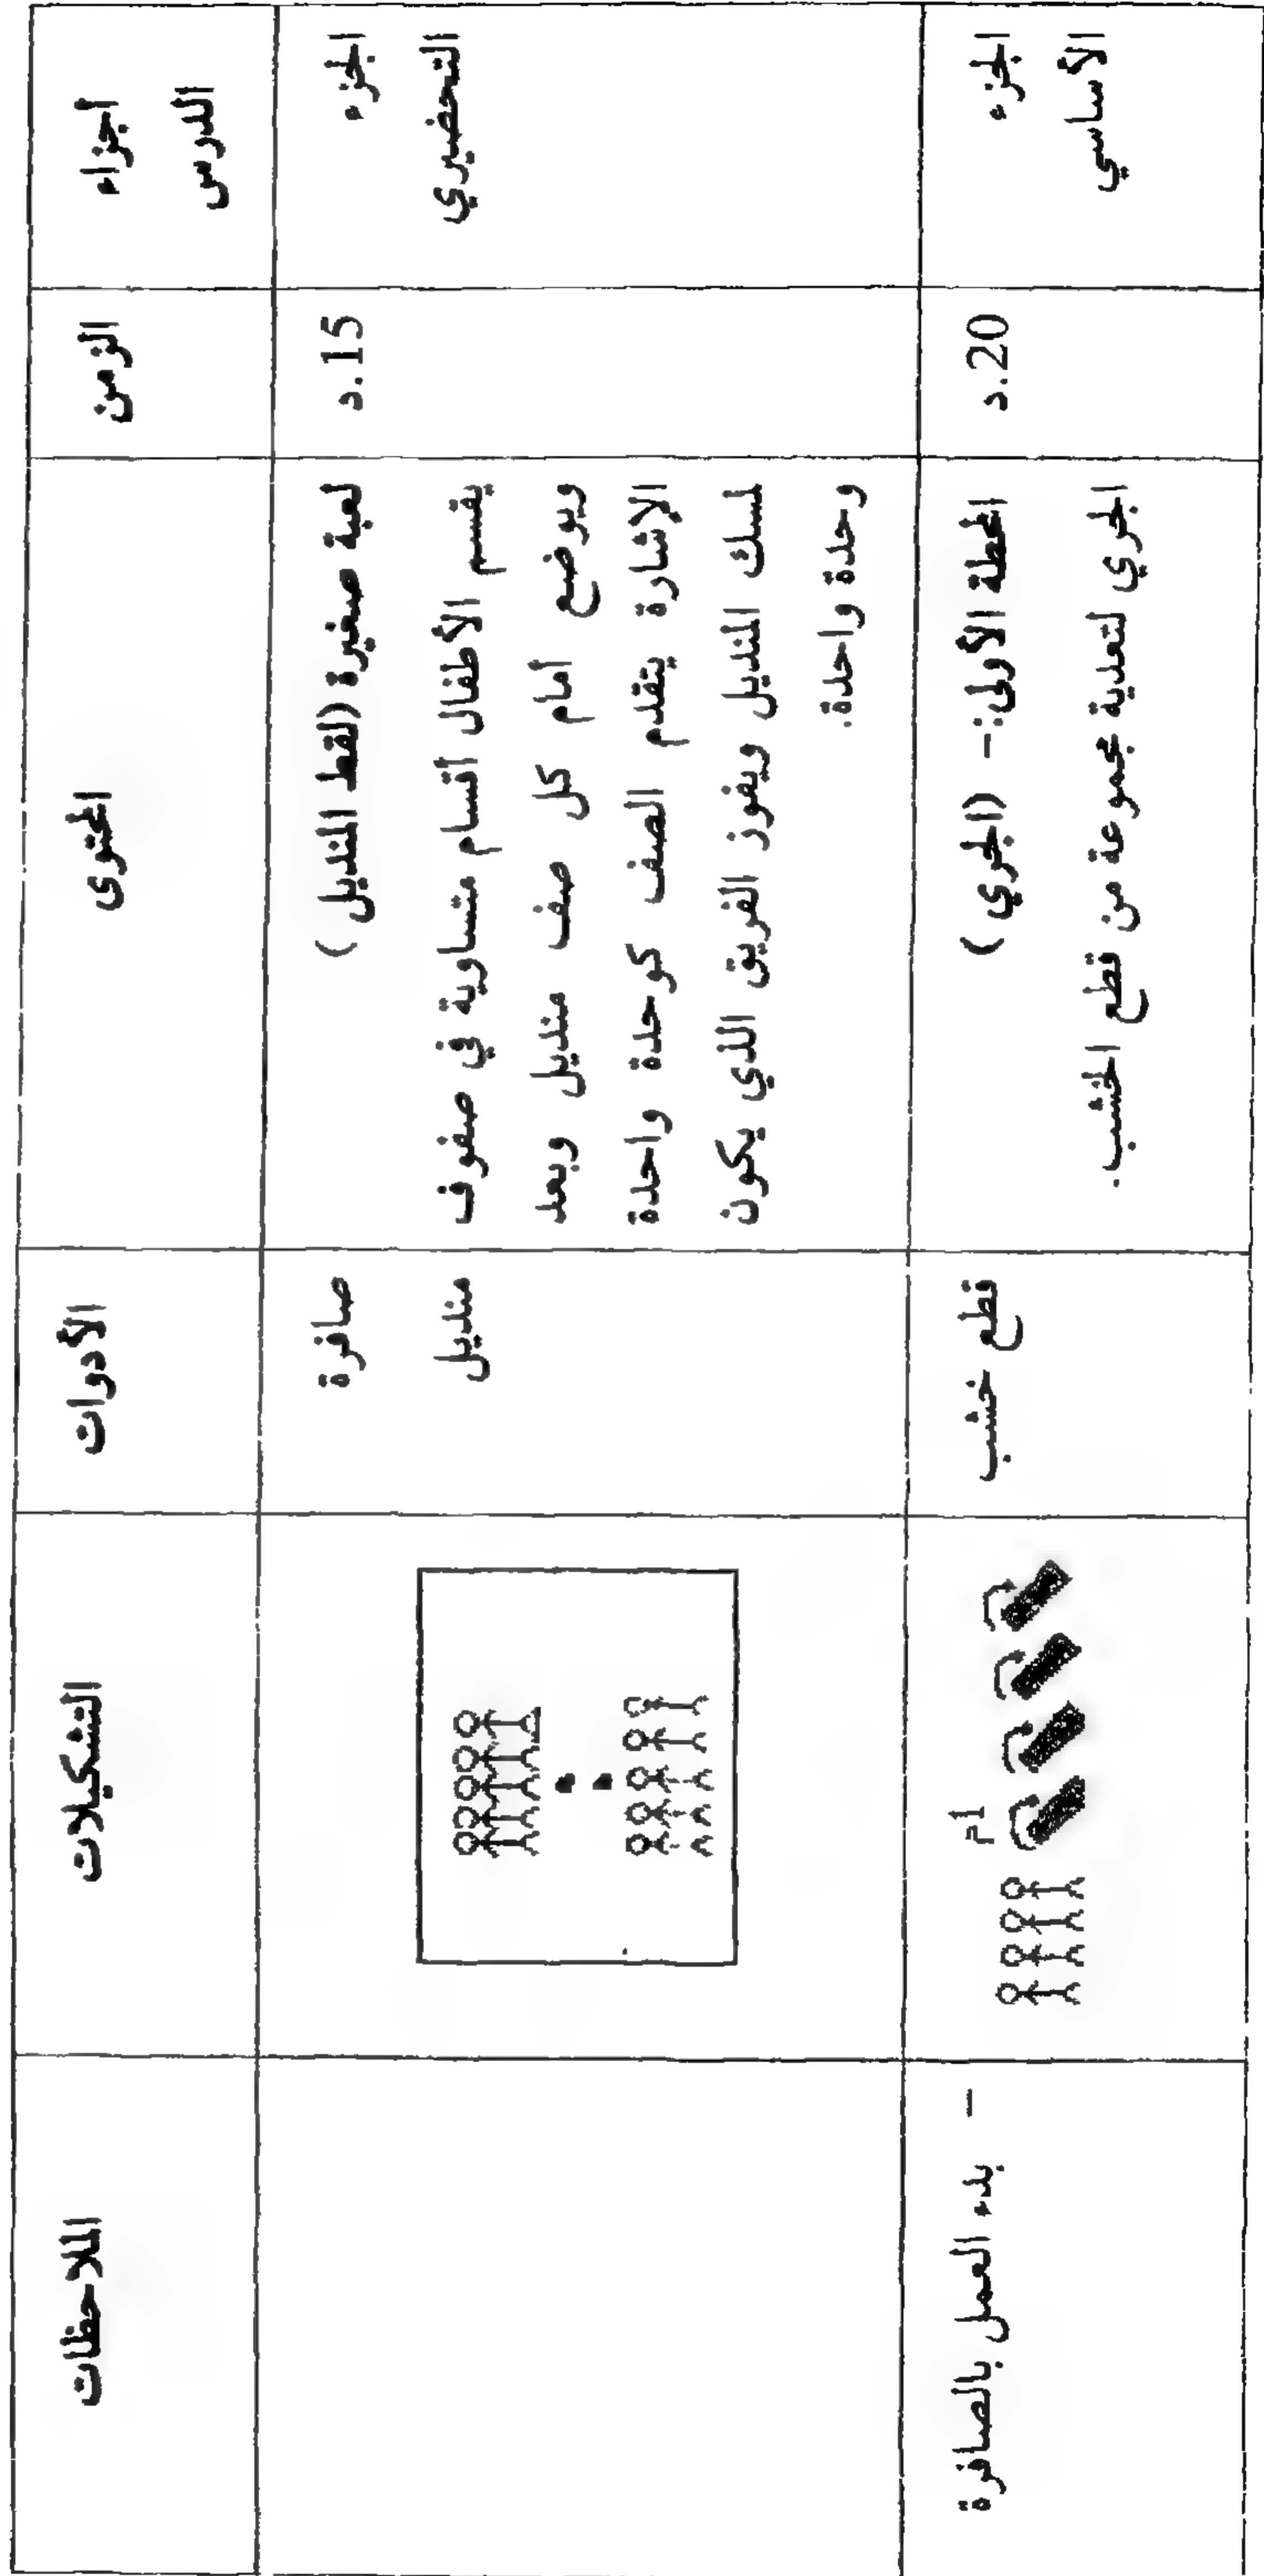 أجزاء
الدرس
الزمن
المحتوى
الأدوات
التشكيلات
الملاحظات
الجزء
التحضيري
15.د
لعبة صغيرة (لقط المنديل )
يقسم الأطفال أقسام متساوية في صفوف
ويوضع أمام كل صف منديل وبعد
الإشارة يتقدم الصف كوحدة واحدة
لمسك المنديل ويفوز الفريق الذي يكون
وحدة واحدة.
صافرة
منديل
الجزء
الأساسي
20.د
المحطة الأولى:- (الجري )
الجري لتعدية مجموعة من قطع الخشب.
قطع خشب
م1
- بدء العمل بالصافرة